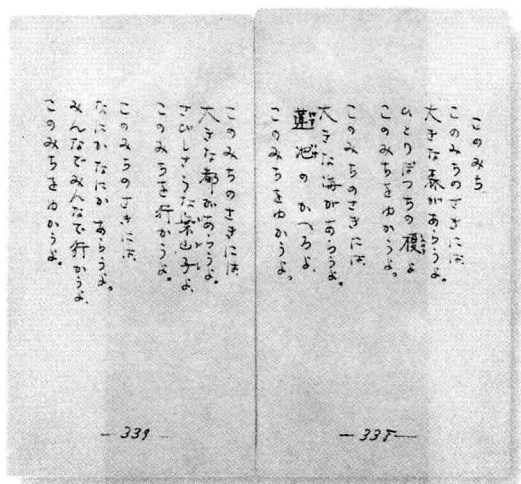 このみち
このみちのさきには、
大きな森があらうよ。
ひとりぼつちの榎よ、
このみちをゆかうよ。
このみちのさきには、
大きな海があらうよ。
蓮池のかへろよ、
このみちをゆかうよ。
— 338 —
このみちのさきには、
大きな都があらうよ。
さびしさうな案山子よ、
このみちを行かうよ。
このみちのさきには、
なにかなにかあらうよ。
みんなでみんなで行かうよ、
このみちをゆかうよ。
— 339 —